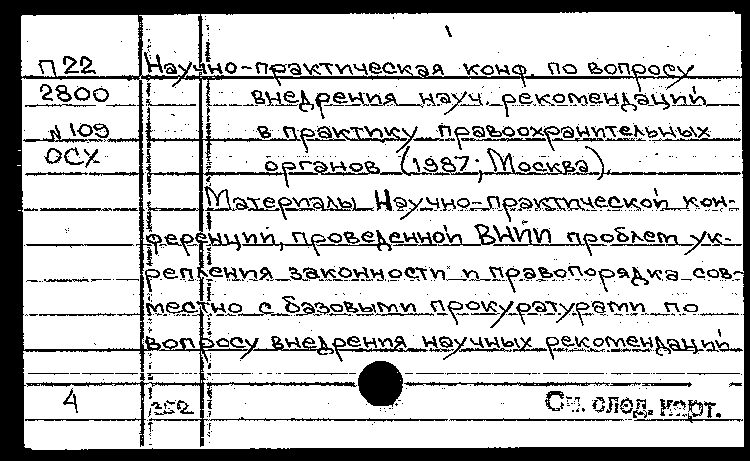 П 22 Научно-практическая конф. по вопросу
2800 внедрения науч. рекомендаций
№ 109 в практику правоохранительных
ОСХ органов (1987; Москва).
Материалы Научно-практической кон-
ференции, проведенной ВНИИ проблем ук-
репления законности и правопорядка сов-
местно с базовыми прокуратурами по
вопросу внедрения научных рекомендаций
4 См. след. карт.